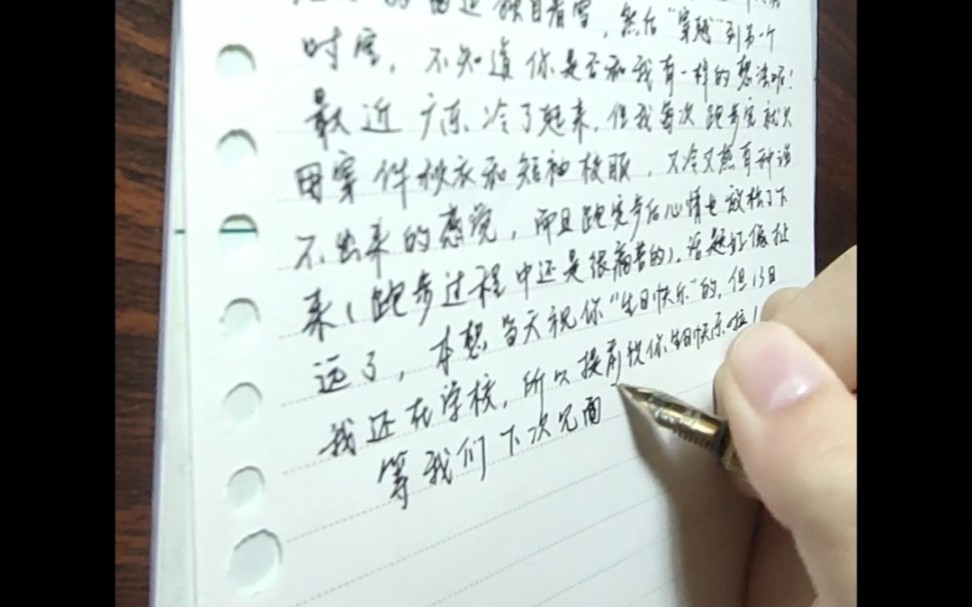 的雷迪独自看雪，然后“穿越”到另一个
时空，不知道你是否和我有一样的想法呢！
最近广东冷了起来，但我每次跑步完就只
用穿件秋衣和短袖校服，又冷又热有种说
不出来的感觉，而且跑完步后心情也放松了下
来（跑步过程中还是很痛苦的）。话题好像扯
远了，本想当天祝你“生日快乐”的，但13日
我还在学校，所以提前祝你生日快乐啦！
等我们下次见面